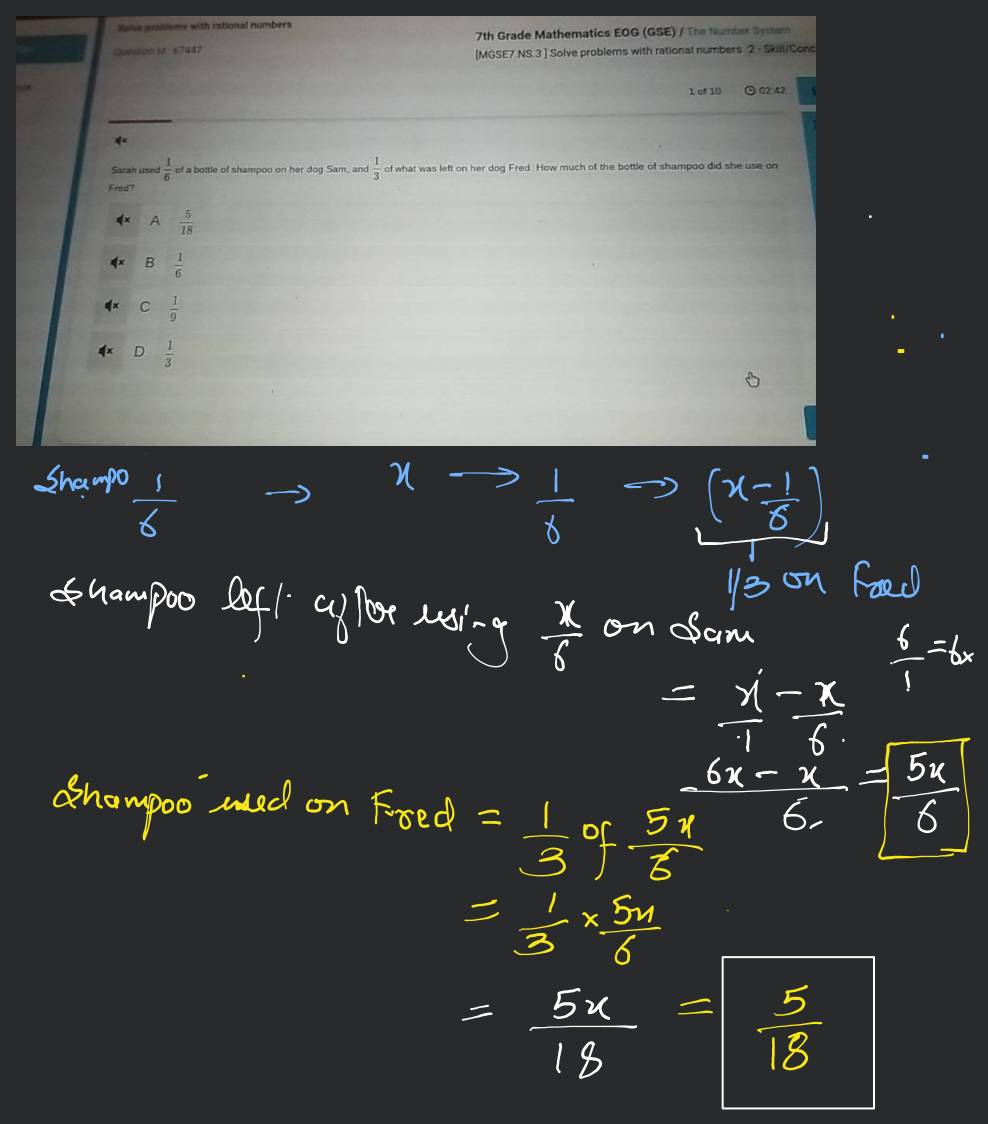 Solve problems with rational numbers
Question Id : 67447
7th Grade Mathematics EOG (GSE) / The Number System
[MGSE7.NS.3 ] Solve problems with rational numbers 2 - Skill/Conc
1 of 10 02:42
Sarah used 1/6 of a bottle of shampoo on her dog Sam, and 1/3 of what was left on her dog Fred. How much of the bottle of shampoo did she use on
Fred?
A 5/18
B 1/6
C 1/9
D 1/3
Shampo 1/6 → x → 1/6 → (x - 1/6)
1/3 on Fred
Shampoo left after using x/6 on Sam
6/1 = 6x
= x/1 - x/6
6x - x/6 = 5x/6
Shampoo used on Fred = 1/3 of 5x/6
= 1/3 × 5x/6
= 5x/18 = 5/18